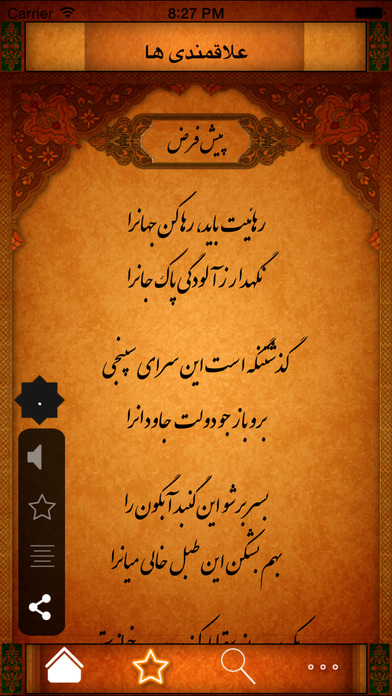 Carrier 8:27 PM
علاقمندی ها
پیش فرض
رهائیت باید، رها کن جهانرا
نگهدار ز آلودگی پاک جانرا
گذشتنگه است این سرای سپنجی
برو باز جو دولت جاودانرا
بسر برشو این گنبد آبگون را
بهم بشکن این طبل خالی میانرا